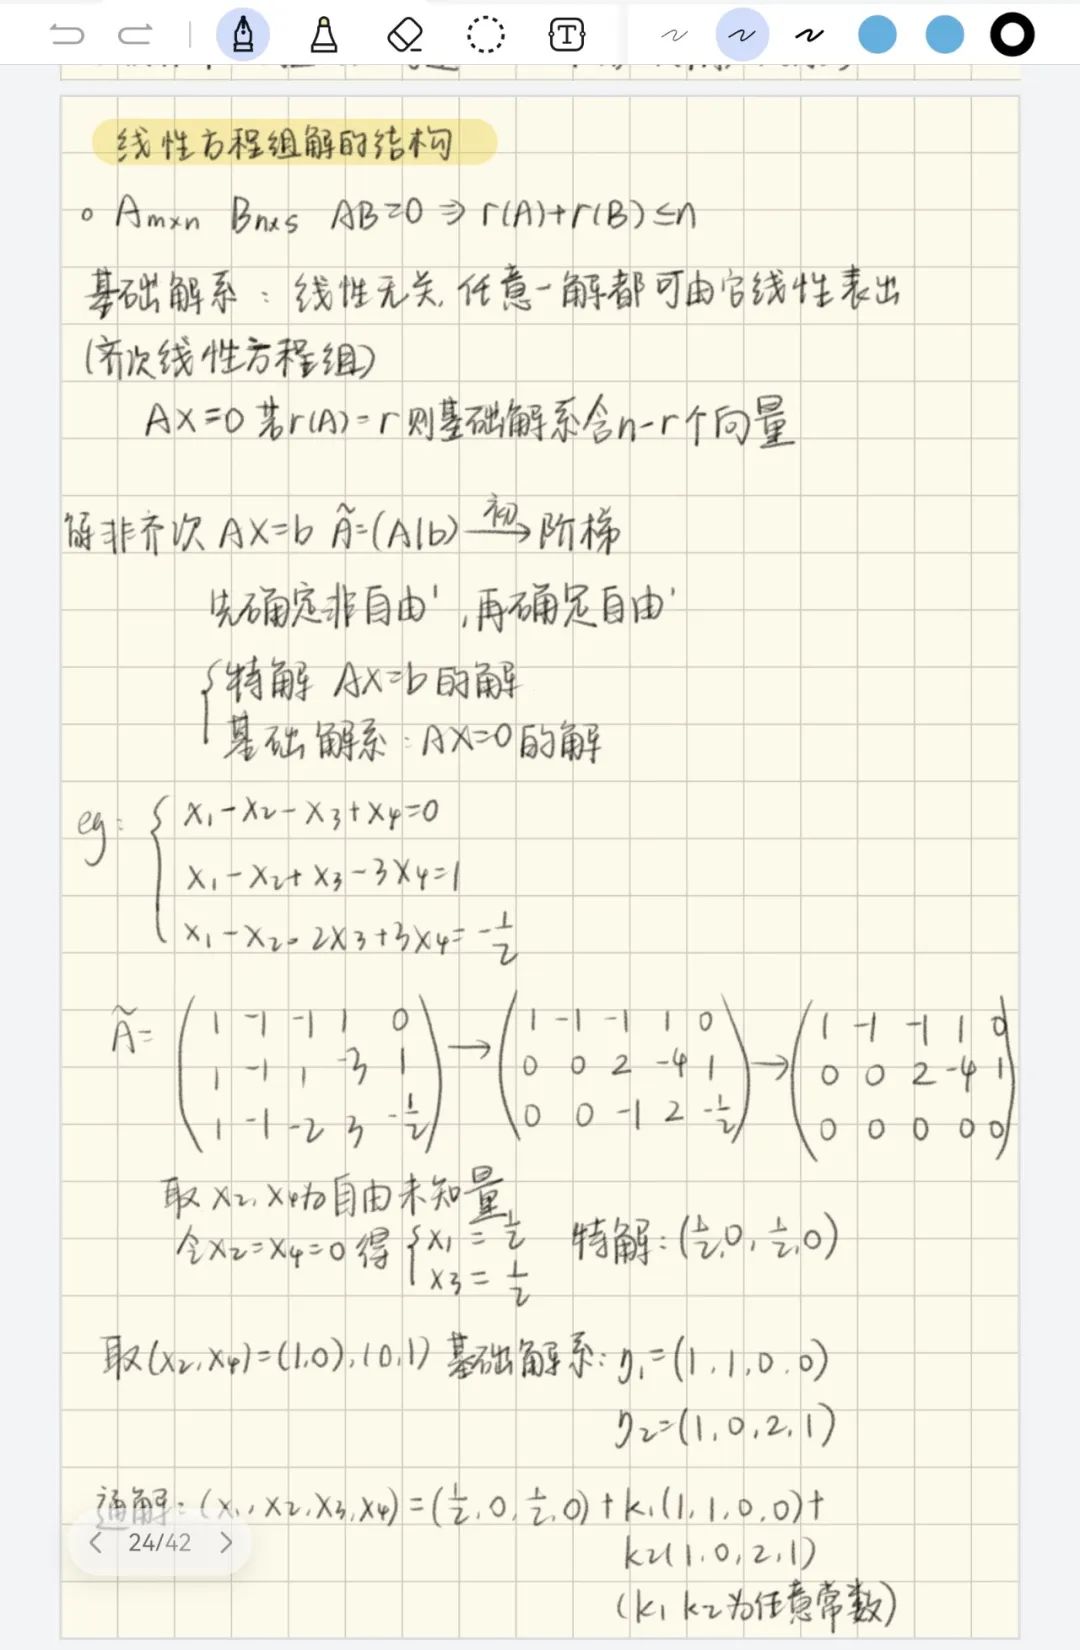 线性方程组解的结构
○ Am×n Bn×s AB=0 ⇒ r(A)+r(B)≤n
基础解系：线性无关,任意一解都可由它线性表出
(齐次线性方程组)
AX=0 若r(A)=r 则基础解系含n-r个向量
解非齐次 AX=b Ã=(A|b) 初→ 阶梯
先确定非自由',再确定自由'
{特解 AX=b的解
基础解系:AX=0的解
eg: { x₁-x₂-x₃+x₄=0
x₁-x₂+x₃-3x₄=1
x₁-x₂-2x₃+3x₄=-1/2
Ã= (1 -1 -1 1 0 → (1 -1 -1 1 0 → (1 -1 -1 1 0
1 -1 1 -3 1 0 0 2 -4 1 0 0 2 -4 1
1 -1 -2 3 -1/2) 0 0 -1 2 -1/2) 0 0 0 0 0)
取x₂,x₄为自由未知量
令x₂=x₄=0 得 {x₁=1/2 特解:(1/2,0,1/2,0)
x₃=1/2
取(x₂,x₄)=(1,0),(0,1) 基础解系: η₁=(1,1,0,0)
η₂=(1,0,2,1)
通解:(x₁,x₂,x₃,x₄)=(1/2,0,1/2,0)+k₁(1,1,0,0)+
24/42
k₂(1,0,2,1)
(k₁ k₂为任意常数)